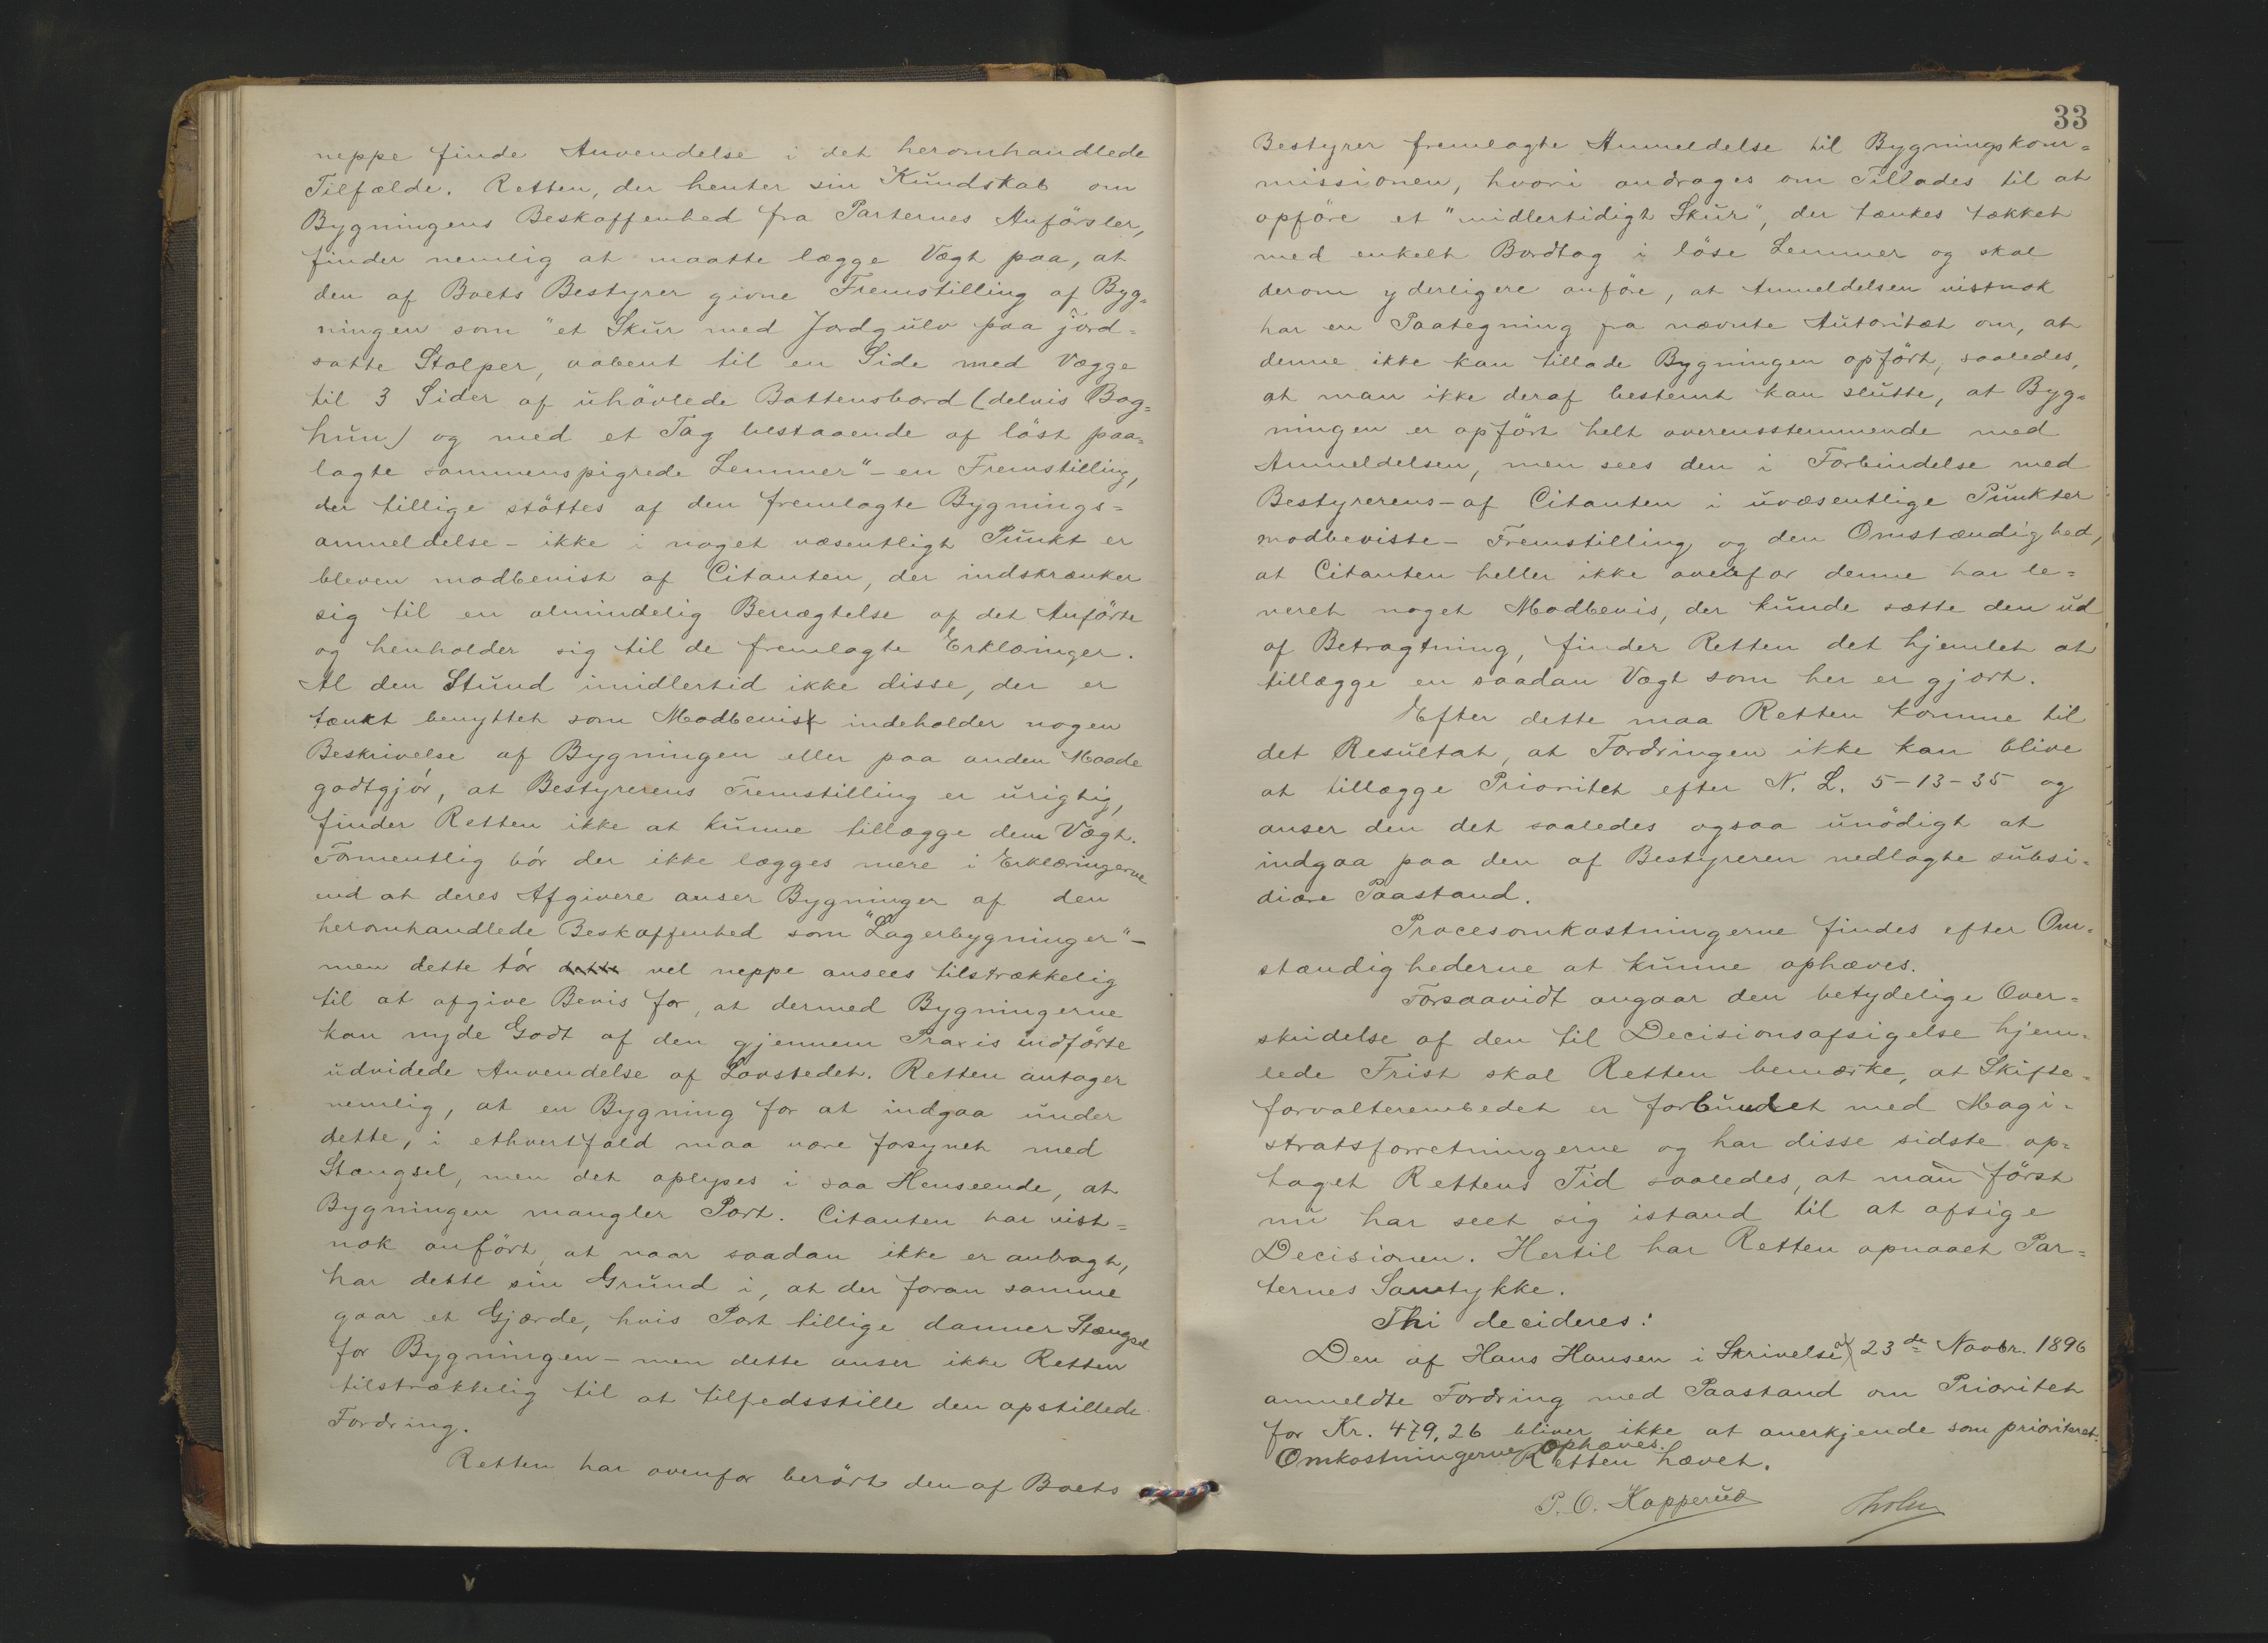 neppe finde Anvendelse i det heromhandlede
Tilfælde. Retten, der henter sin Kundskab om
Bygningens Beskaffenhed fra Parternes Anförsler,
finder nemlig at maatte lægge Vægt paa, at
den af Boets Bestyrer givne Fremstilling af Byg=
ningen som "et Skur med Jordgulv paa jord=
satte Stolper, aabent til en Side med Vægge
til 3 Sider af uhövlede Battensbord (delvis Bag=
hun) og med et Tag bestaaende af löst paa=
lagte sammenspigrede Lemmer" - en Fremstilling,
der tillige stöttes af den fremlagte Bygnings=
anmeldelse - ikke i noget væsentligt Punkt er
bleven modbevist af Citanten, der indskrænker
sig til en almindelig Benægtelse af det Anförte
og henholder sig til de fremlagte Erklæringer.
Al den Stund imidlertid ikke disse, der er
tænkt benyttet som Modbevis indeholder nogen
Beskrivelse af Bygningen eller paa anden Maade
godtgjör, at Bestyrerens Fremstilling er urigtig,
finder Retten ikke at kunne tillægge dem Vægt.
Formentlig bör der ikke lægges mere i Erklæringerne
end at deres Afgivere anser Bygninger af den
heromhandlede Beskaffenhed som "Lagerbygninger" -
men dette tör dette vel neppe ansees tilstrækkelig
til at afgive Bevis for, at dermed Bygningerne
kan nyde Godt af den gjennem Praxis indförte
udvidede Anvendelse af Lovstedet. Retten antager
nemlig, at en Bygning for at indgaa under
dette, i ethvertfald maa være fosynet med
Stængsel, men det oplyses i saa Henseende, at
Bygningen mangler Port. Citanten har vist=
nok anfört, at naar saadan ikke er anbragt,
har dette sin Grund i, at der foran samme
gaar et Gjærde, hvis Port tillige danner Stængsel
for Bygningen - men dette anser ikke Retten
tilstrækkelig til at tilfredsstille den opstillede
Fordring.
Retten har ovenfor berört den af Boets
33
Bestyrer fremlagte Anmeldelse til Bygningskom=
missionen, hvori andrages om Tillades til at
opföre et "midlertidigt Skur", der tænkes tækket
med enkelt Bordtag i löse Lemmer og skal
derom yderligere anföre, at Anmeldelsen vistnok
har en Paategning fra nævnte Autoritæt om, at
denne ikke kan tillade Bygningen opfört, saaledes,
at man ikke deraf bestemt kan slutte, at Byg=
ningen er opfört helt overensstemmende med
Anmeldelsen, men sees den i Forbindelse med
Bestyrerens - af Citanten i uvæsentlige Punkter
modbeviste - Fremstilling og den Omstændighed,
at Citanten heller ikke overfor denne har le=
veret noget Modbevis, der kunde sætte den ud
af Betragtning, finder Retten det hjemlet at
tillægge en saadan Vægt som her er gjort.
Efter dette maa Retten komme til
det Resultat, at Fordringen ikke kan blive
at tillægge Prioritet efter N. L. 5-13-35 og
anser den det saaledes ogsaa unödigt at
indgaa paa den af Bestyreren nedlagte subsi=
diære Paastand.
Procesomkostningerne findes efter Om=
stændighederne at kunne ophæves.
Forsaavidt angaar den betydelige Over=
skridelse af den til Decisionsafsigelse hjem=
lede Frist skal Retten bemærke, at Skifte=
forvalterembedet er forbundet med Magi=
stratsforretningerne og har disse sidste op=
taget Rettens Tid saaledes, at man först
nu har seet sig istand til at afsige
Decisionen. Hertil har Retten opnaaet Par=
ternes Samtykke.
Thi decideres:
Den af Hans Hansen i Skrivelse 23de Novbr. 1896
anmeldte Fordring med Paastand om Prioritet
for Kr. 479,26 bliver ikke at anerkjende som prioriteret.
Omkostningerne ophæves.
Retten hævet.
P. O. Kapperud